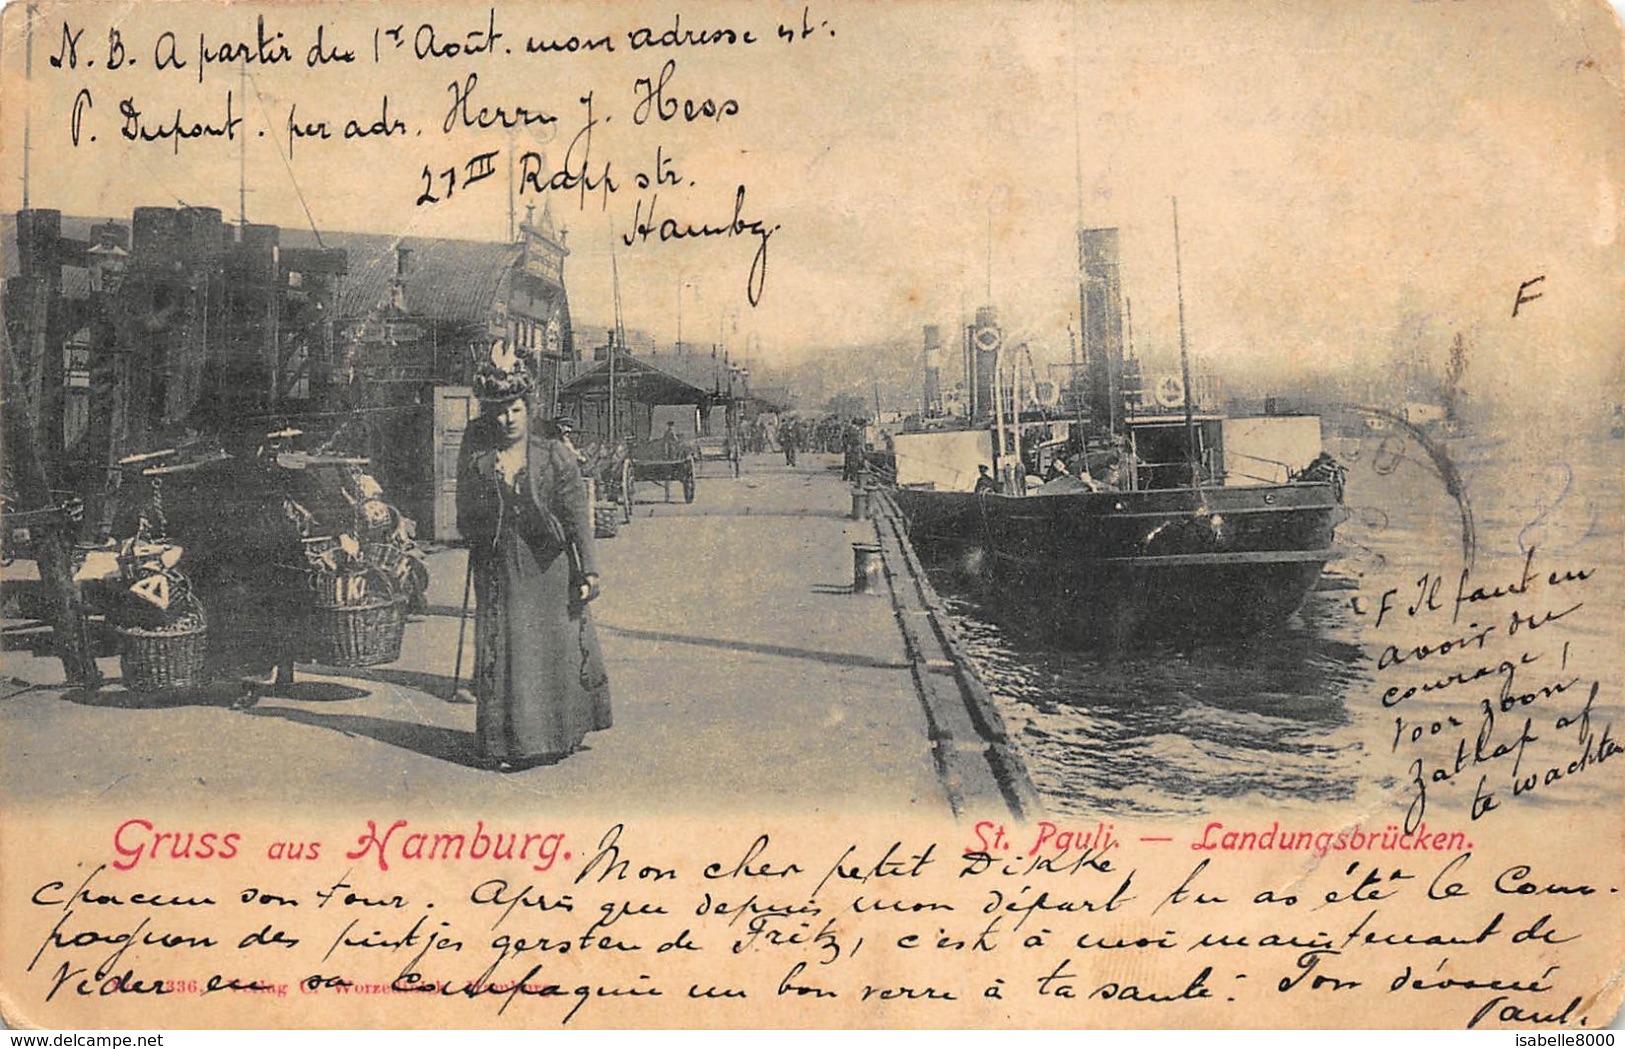 N. B. A partir du 1r Août. mon adresse est:
P. Dupont. per adr. Herrn J. Hess
27 III Rapp str.
Hambg.
F
F Il faut en
avoir du
courage,
voor zoon
zatlap af
te wachten
Gruss aus Hamburg.
St. Pauli. — Landungsbrücken.
Mon cher petit Dikke,
chacun son tour. Après que depuis mon départ tu as été le Com-
pagnon des pintjes gersten de Fritz, c'est à moi maintenant de
vider en sa compagnie un bon verre à ta santé. Ton dévoué
Paul.
336. Verlag C. Worzedialek, Hamburg
isabelle8000
delcampe.net